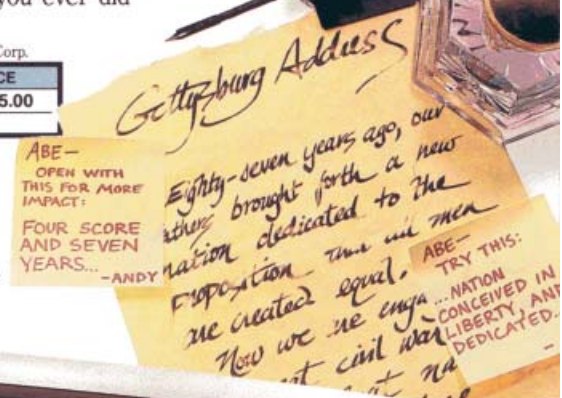 you ever did
Corp.
CE
5.00
Gettysburg Address
Eighty-seven years ago, our
athers brought forth a new
nation dedicated to the
proposition that all men
are created equal.
Now we are enga
at civil war
at na
ABE—
OPEN WITH
THIS FOR MORE
IMPACT:
FOUR SCORE
AND SEVEN
YEARS...
-ANDY
ABE—
TRY THIS:
...NATION
CONCEIVED IN
LIBERTY, AND
DEDICATED...